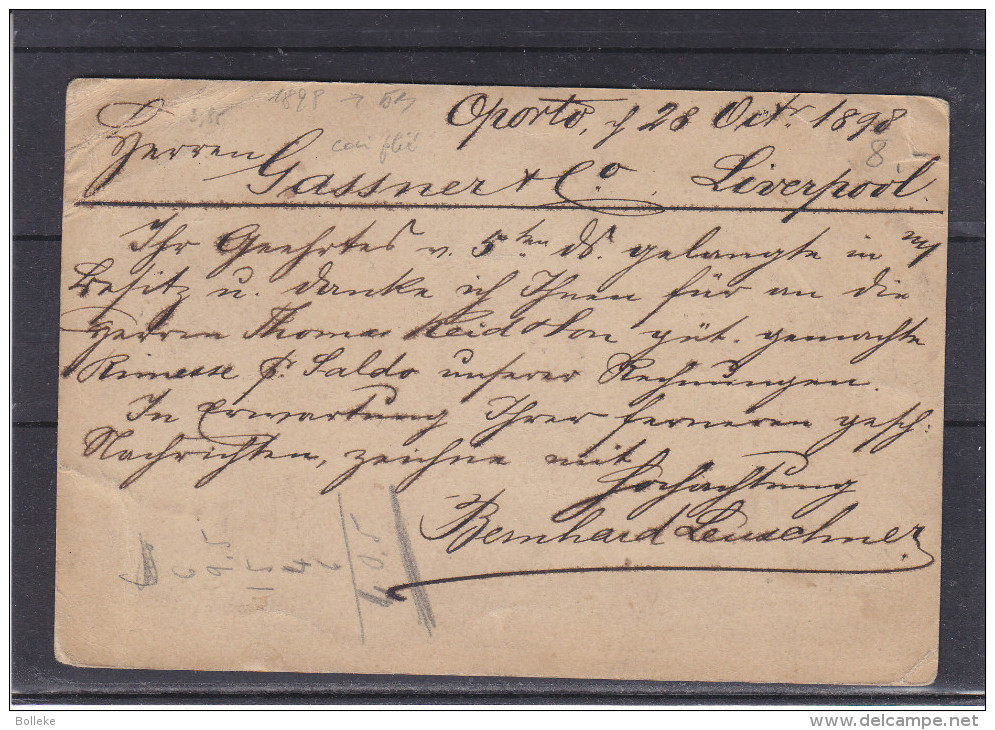 Oporto, 28 Octr. 1898
1898
8
Herren
Gassner & Co. Liverpool.
Ihr Geehrtes v. 5ten ds. gelangte in m/
Besitz u. danke ich Ihnen für an die
Herren Thomas Reid & Son güt. gemachte
Rimesse pr. Saldo unserer Rechnungen.
In Erwartung Ihrer ferneren gesch:
Nachrichten, zeichne mit
Hochachtung
Bernhard Leuschner
Bolleke
www.delcampe.net